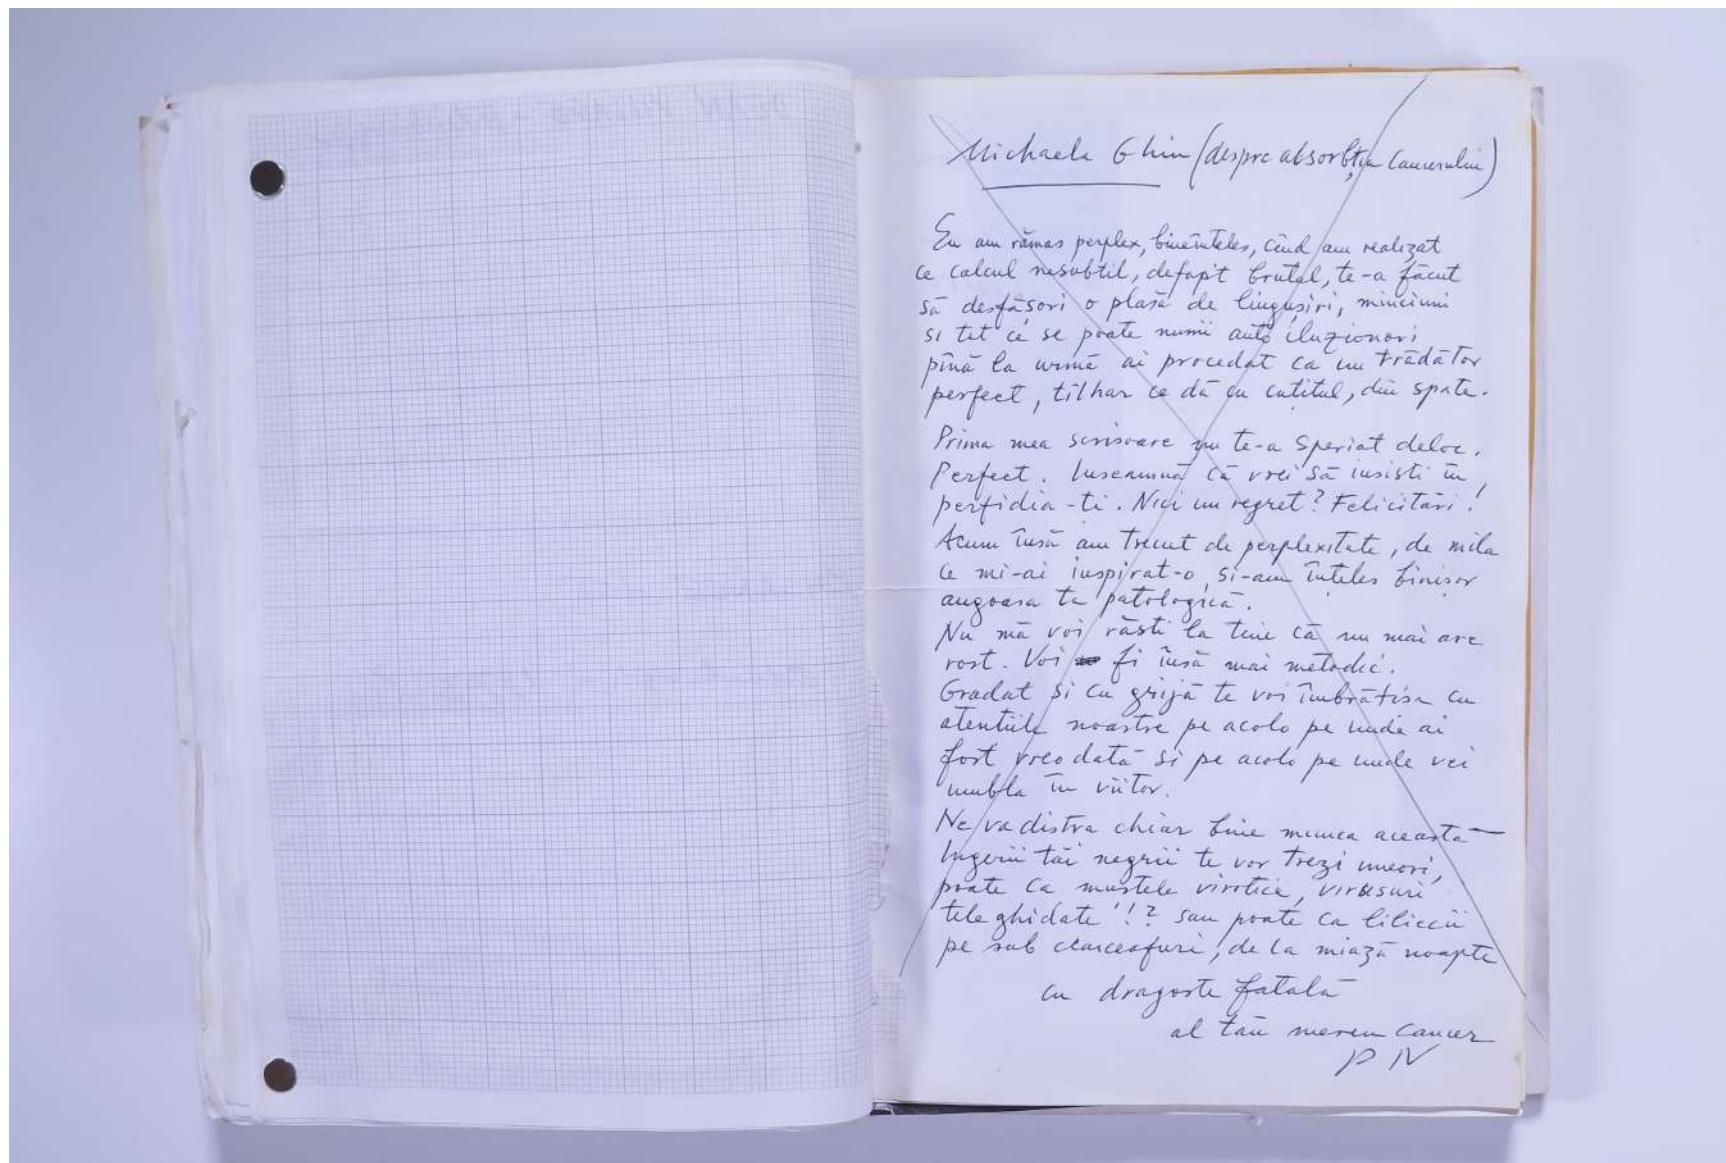 Michaela Ghin (despre absorbția cancerului)
Eu am rămas perplex, bineînteles, cînd am realizat
ce calcul nesubtil, defapt brutal, te-a făcut
să desfăsori o plasă de lingușiri, minciuni
si tot ce se poate numii auto iluzionari
pînă la urmă ai procedat ca un trădător
perfect, tîlhar ce dă cu cutitul, din spate.
Prima mea scrisoare nu te-a speriat deloc.
Perfect. Inseamnă că vrei să insisti în
perfidia-ti. Nici un regret? Felicitări!
Acum însă am trecut de perplexitate, de mila
ce mi-ai inspirat-o, si-am înteles binisor
angoasa ta patologică.
Nu mă voi răsti la tine că nu mai are
rost. Voi fi însă mai metodic.
Gradat si cu grijă te voi îmbrătisa cu
atentiile noastre pe acolo pe unde ai
fost vreodată si pe acolo pe unde vei
umbla în viitor.
Ne va distra chiar bine munca aceasta
Ingerii tăi negrii te vor trezi uneori,
poate ca mustele virotice, virusuri
teleghidate!!? sau poate ca liliecii
pe sub cearceafuri, de la miază noapte
cu dragoste fatală
al tău mereu cancer
P N